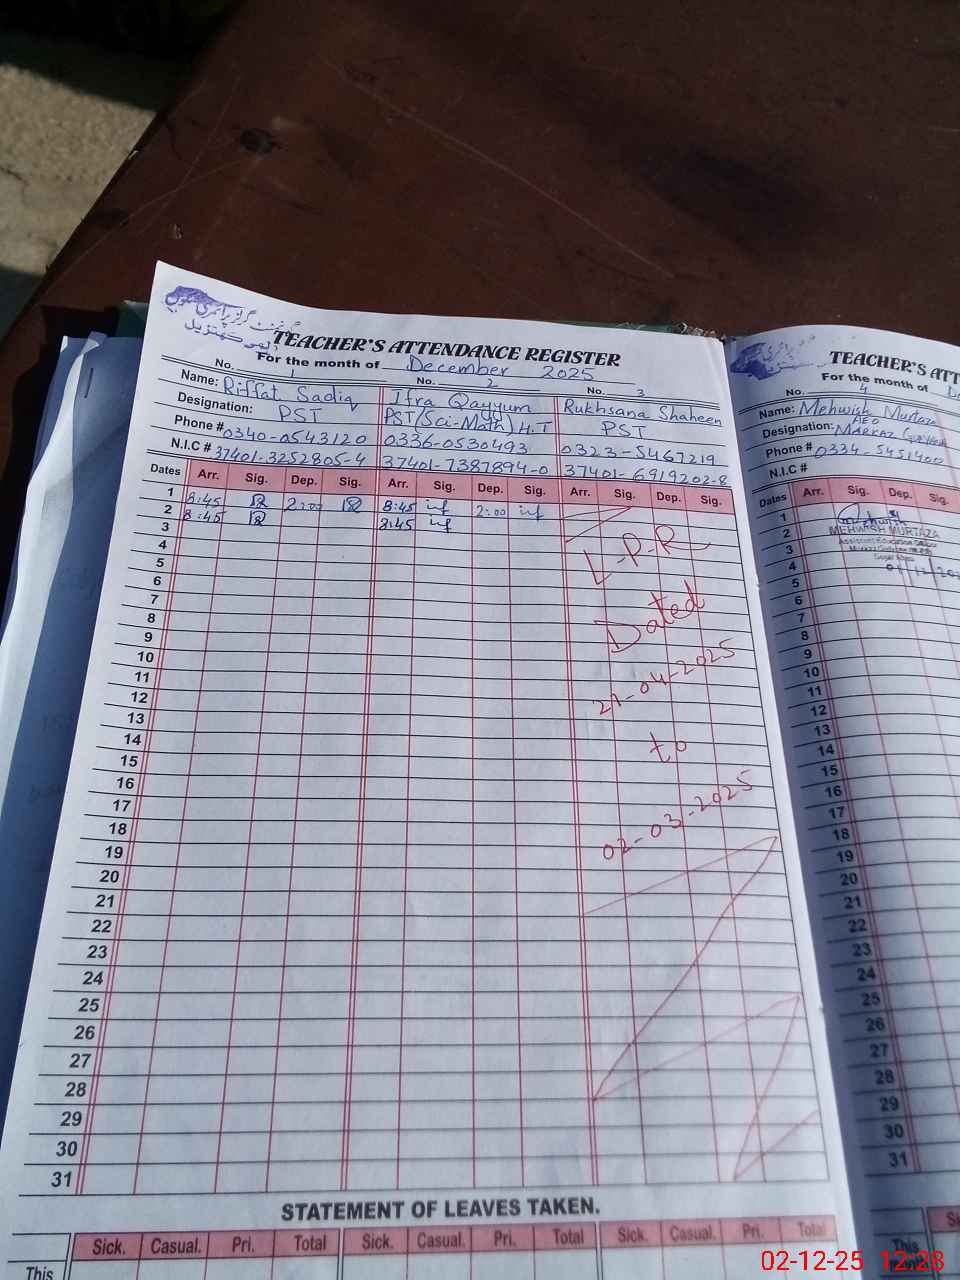 TEACHER'S ATTENDANCE REGISTER
For the month of December 2025
No. 1 No. 2 No. 3
Name: Riffat Sadiq Ifra Qayyum Rukhsana Shaheen
Designation: PST PST(Sci-Math) H.T PST
Phone # 0340-0543120 0336-0530493 0323-5467219
N.I.C # 37401-3252805-4 37401-7387894-0 37401-6919202-8
Dates Arr. Sig. Dep. Sig. Arr. Sig. Dep. Sig. Arr. Sig. Dep. Sig.
1 8:45 2:00 8:45 2:00
2 8:45 8:45
3
4
5
6
7
8
9
10
11
12
13
14
15
16
17
18
19
20
21
22
23
24
25
26
27
28
29
30
31
L-P-R
Dated
21-04-2025
to
02-03-2025
STATEMENT OF LEAVES TAKEN.
Sick. Casual. Pri. Total Sick. Casual. Pri. Total Sick. Casual. Pri. Total
This
TEACHER'S ATT
For the month of
No. 4
Name: Mehwish Murtaza
Designation: AEO
MARKAZ
Phone # 0334-5451400
N.I.C #
Dates Arr. Sig. Dep. Sig.
1
2 MEHWISH MURTAZA
3 Assistant Education Officer
4
5
6
7
8
9
10
11
12
13
14
15
16
17
18
19
20
21
22
23
24
25
26
27
28
29
30
31
This
02-12-25 12:28